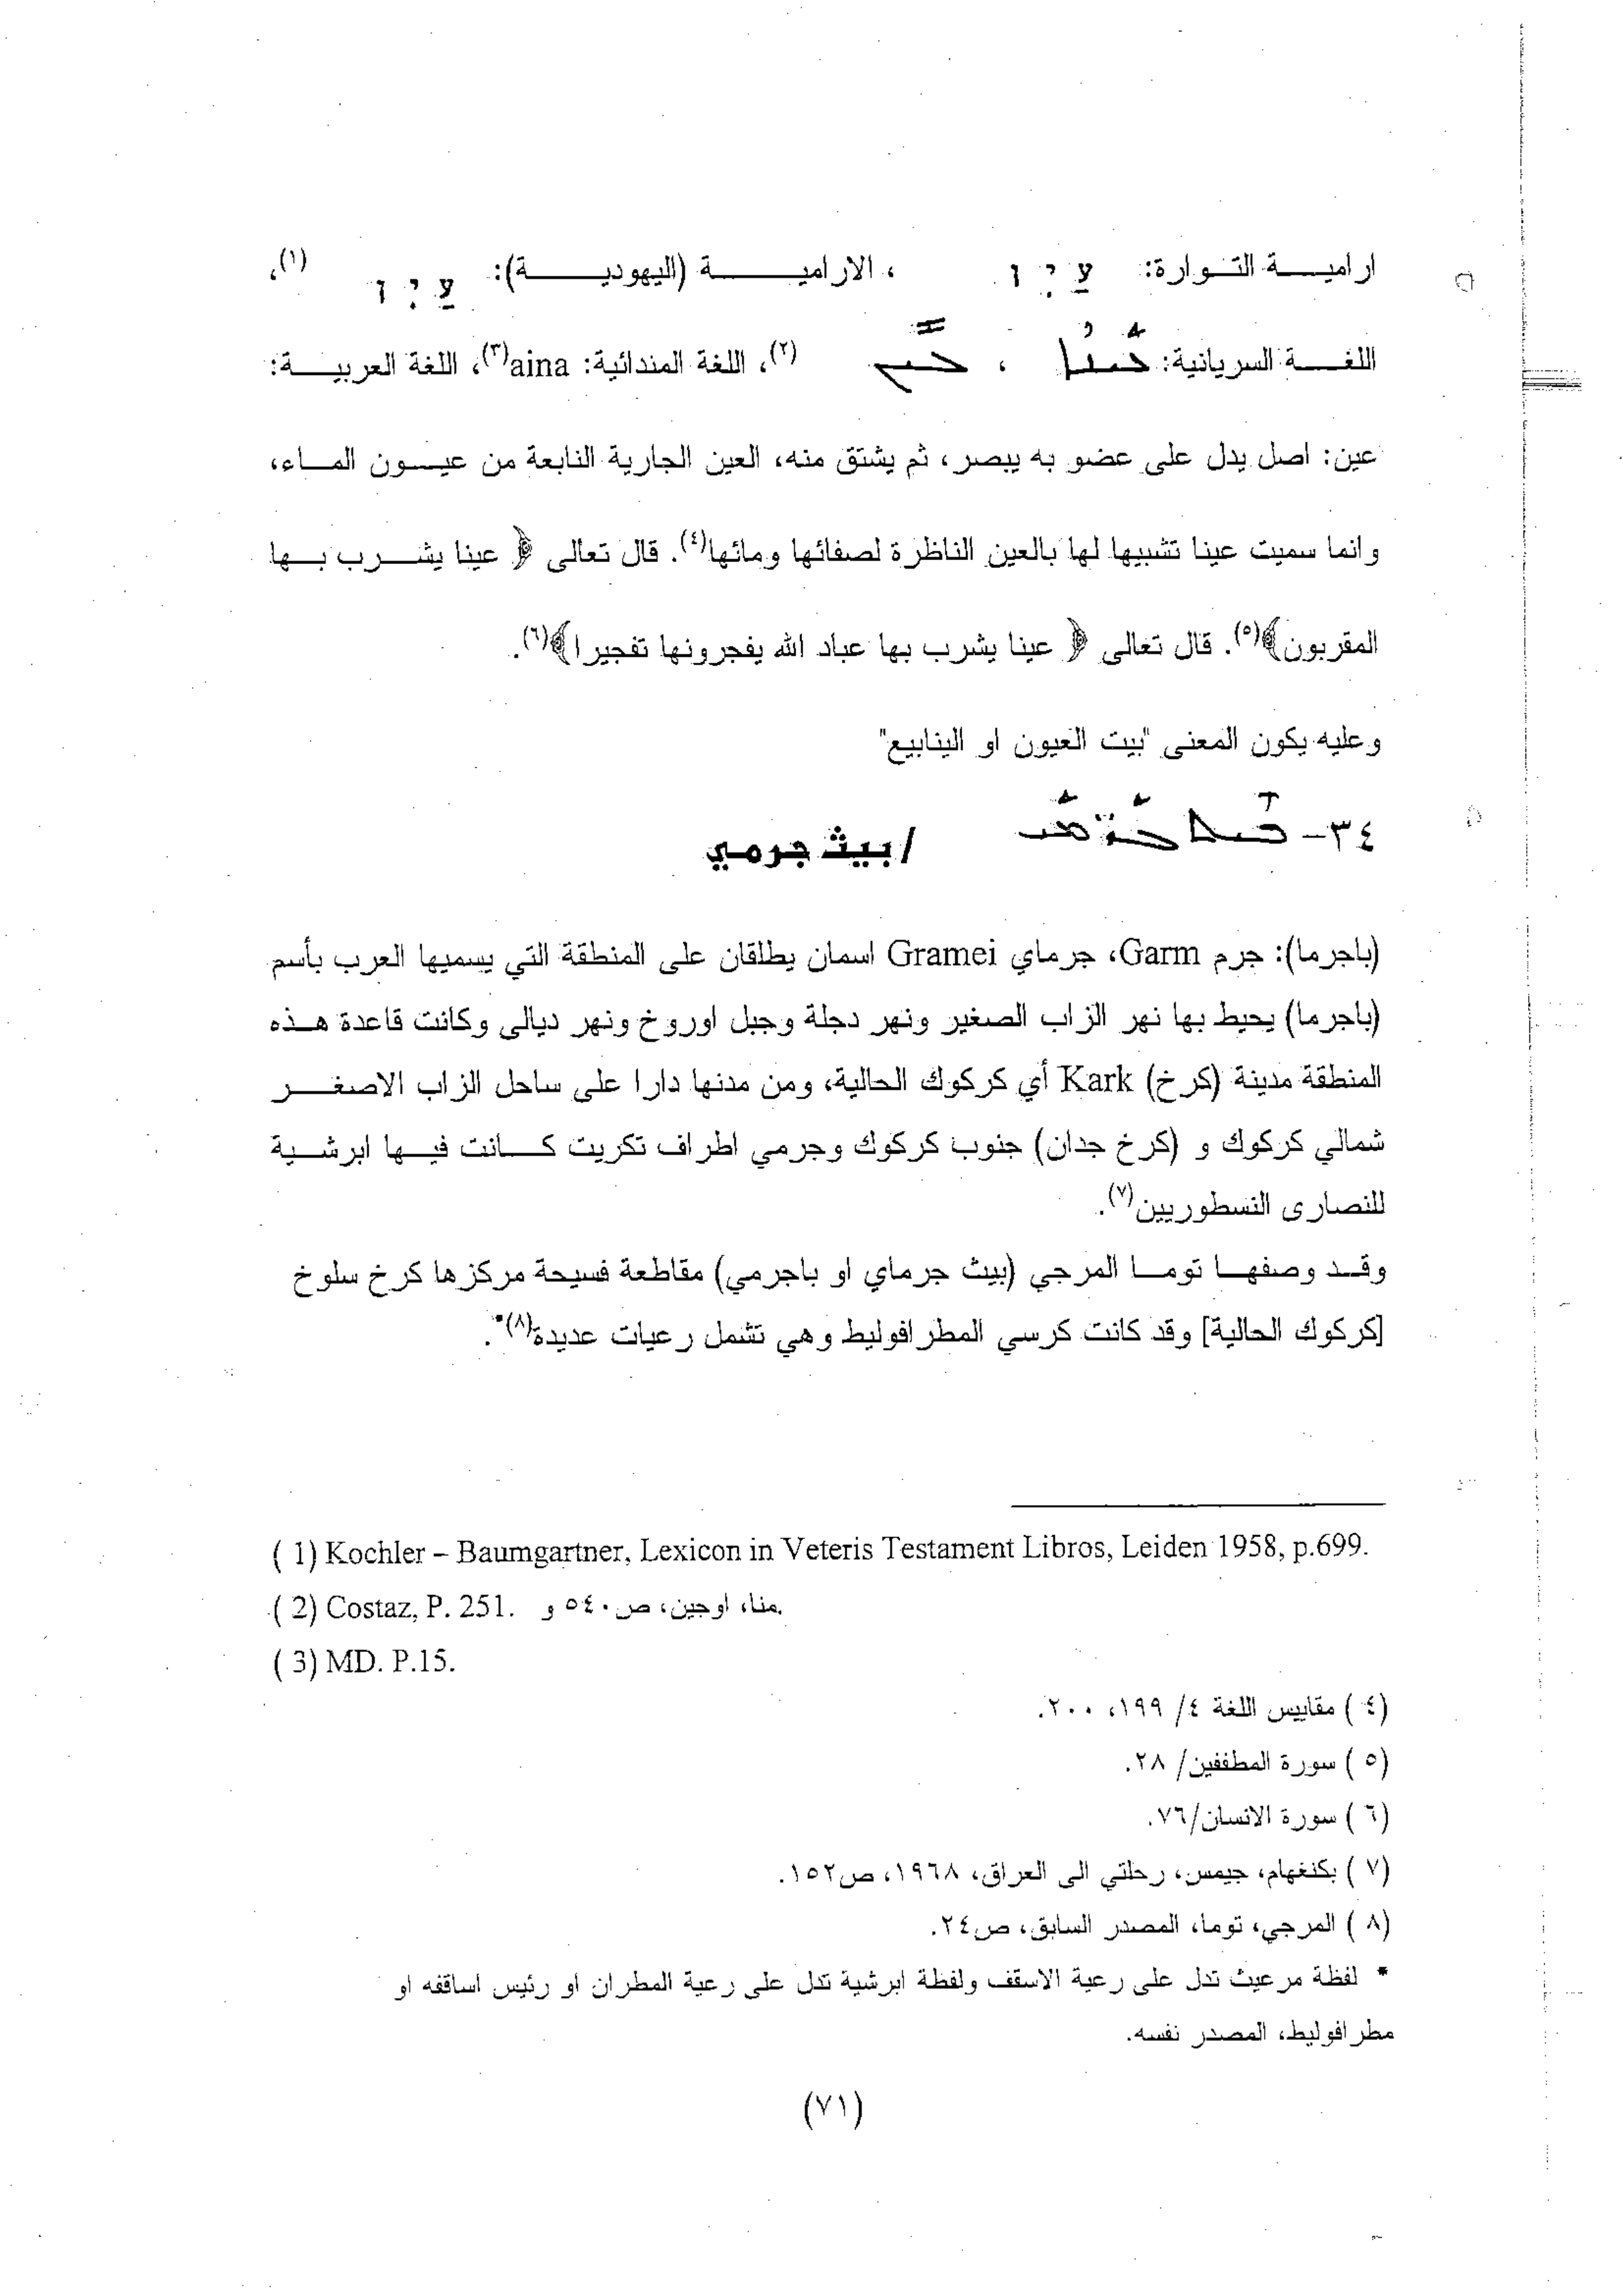 ارامية التوارة: עַיִן ، الارامية (اليهودية): עַיִן (١)،
اللغة السريانية: ܥܝܢܐ ، ܥܝܢ (٢)، اللغة المندائية: aina(٣)، اللغة العربية:
عين: اصل يدل على عضو به يبصر، ثم يشتق منه، العين الجارية النابعة من عيون الماء،
وانما سميت عينا تشبيها لها بالعين الناظرة لصفائها ومائها(٤). قال تعالى ﴿ عينا يشرب بها
المقربون﴾(٥). قال تعالى ﴿ عينا يشرب بها عباد الله يفجرونها تفجيرا﴾(٦).
وعليه يكون المعنى "بيت العيون او الينابيع"
٣٤- /بيث جرمي
(باجرما): جرم Garm، جرماي Gramei اسمان يطلقان على المنطقة التي يسميها العرب بأسم
(باجرما) يحيط بها نهر الزاب الصغير ونهر دجلة وجبل اوروخ ونهر ديالى وكانت قاعدة هذه
المنطقة مدينة (كرخ) Kark أي كركوك الحالية، ومن مدنها دارا على ساحل الزاب الاصغر
شمالي كركوك و (كرخ جدان) جنوب كركوك وجرمي اطراف تكريت كانت فيها ابرشية
للنصارى النسطوريين(٧).
وقد وصفها توما المرجي (بيث جرماي او باجرمي) مقاطعة فسيحة مركزها كرخ سلوخ
[كركوك الحالية] وقد كانت كرسي المطرافوليط وهي تشمل رعيات عديدة(٨)*.
( 1) Kochler – Baumgartner, Lexicon in Veteris Testament Libros, Leiden 1958, p.699.
( 2) Costaz, P. 251. منا، اوجين، ص٥٤٠ و.
( 3) MD. P.15.
(٤ ) مقاييس اللغة ٤/ ١٩٩، ٢٠٠.
(٥ ) سورة المطففين/ ٢٨.
(٦ ) سورة الانسان/٧٦.
(٧ ) بكنغهام، جيمس، رحلتي الى العراق، ١٩٦٨، ص١٥٢.
(٨ ) المرجي، توما، المصدر السابق، ص٢٤.
* لفظة مرعيث تدل على رعية الاسقف ولفظة ابرشية تدل على رعية المطران او رئيس اساقفه او
مطرافوليط، المصدر نفسه.
(٧١)